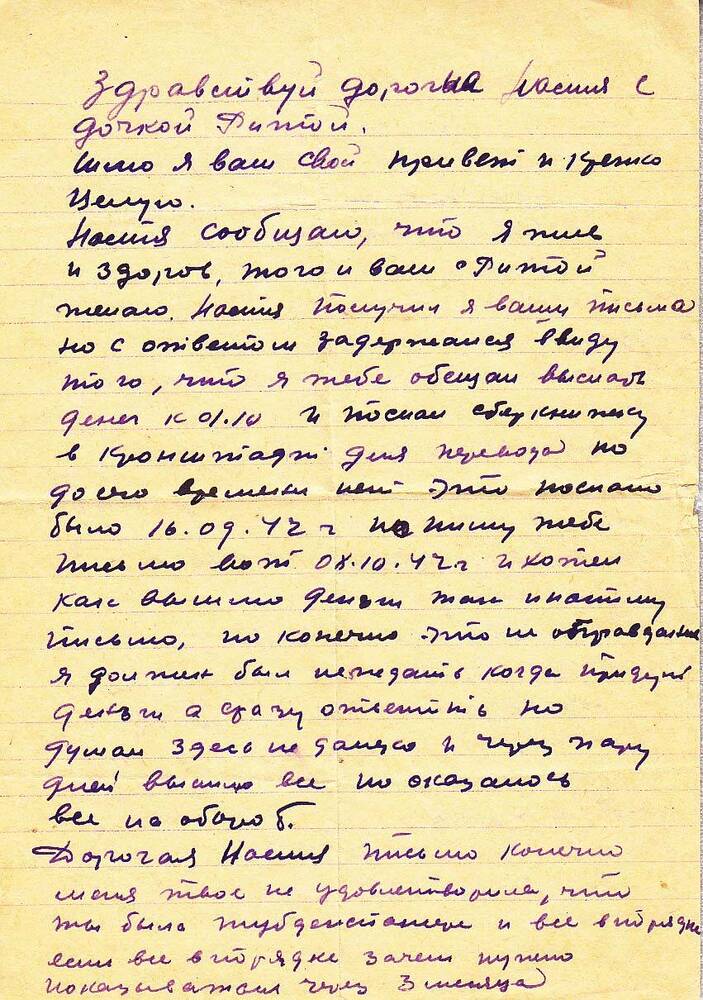 Здравствуй дорогая Настя с
дочкой Ритой.
Шлю я вам свой привет и крепко
целую.
Настя сообщаю, что я жив
и здоров, того и вам с Ритой
желаю. Настя получил я ваши письма
но с ответом задержался ввиду
того, что я тебе обещал выслать
денег к 01.10 и послал сберкнижку
в Кронштадт для перевода но
до сего времени нет это послано
было 16.09.42 г пишу тебе
письмо вот 08.10.42 г и хотел
как вышлю деньги так и напишу
письмо, но конечно это не оправдание
я должен был не ждать когда придут
деньги а сразу ответить но
думал здесь не далеко и через пару
дней вышлю все но оказалось
все на оборот.
Дорогая Настя письмо конечно
меня твое не удовлетворило, что
ты была в и все в порядке
если все в порядке зачем нужно
показываться через 3 месяца